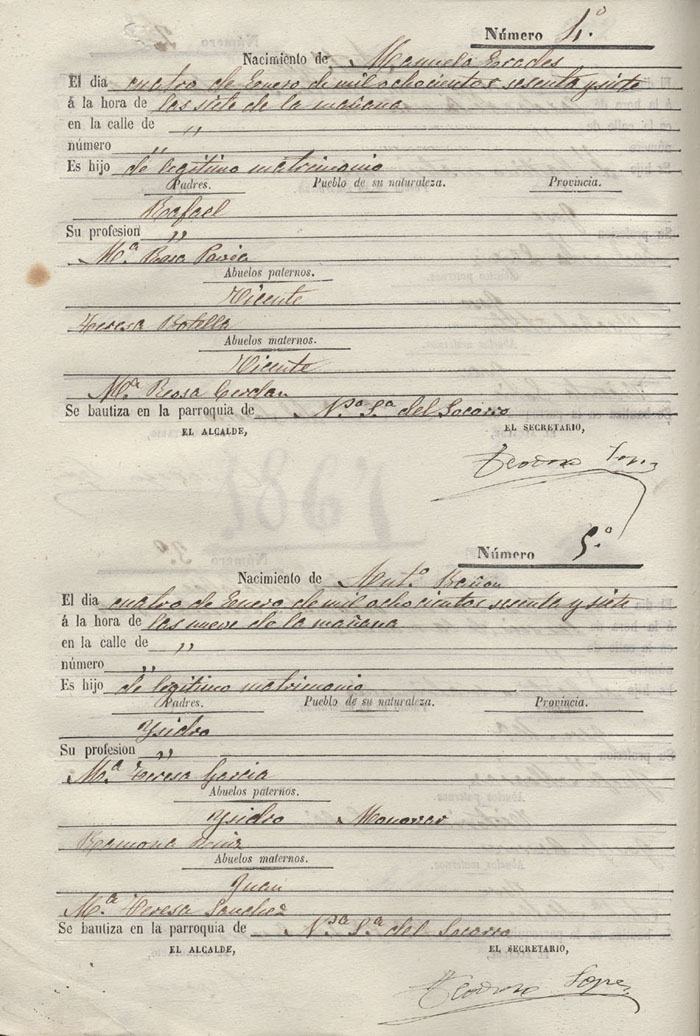 Número 4.º
Nacimiento de Manuela Erades
El dia cuatro de Enero de mil ochocientos sesenta y siete
á la hora de las siete de la mañana
en la calle de "
número "
Es hijo de legitimo matrimonio
Padres. Pueblo de su naturaleza. Provincia.
Rafael
Su profesion "
M.ª Rosa Pavia
Abuelos paternos.
Vicente
Teresa Botella
Abuelos maternos.
Vicente
M.ª Rosa Cerdan
Se bautiza en la parroquia de N.ª S.ª del Socorro
EL ALCALDE, EL SECRETARIO,
Teodoro Lopez
Número 5.º
Nacimiento de Ant.º Bañon
El dia cuatro de Enero de mil ochocientos sesenta y siete
á la hora de las nueve de la mañana
en la calle de "
número "
Es hijo de legitimo matrimonio
Padres. Pueblo de su naturaleza. Provincia.
Ysidro
Su profesion "
M.ª Teresa Garcia
Abuelos paternos.
Ysidro Monovar
Ramona
Abuelos maternos.
Juan
M.ª Teresa Sanchez
Se bautiza en la parroquia de N.ª S.ª del Socorro
EL ALCALDE, EL SECRETARIO,
Teodoro Lopez